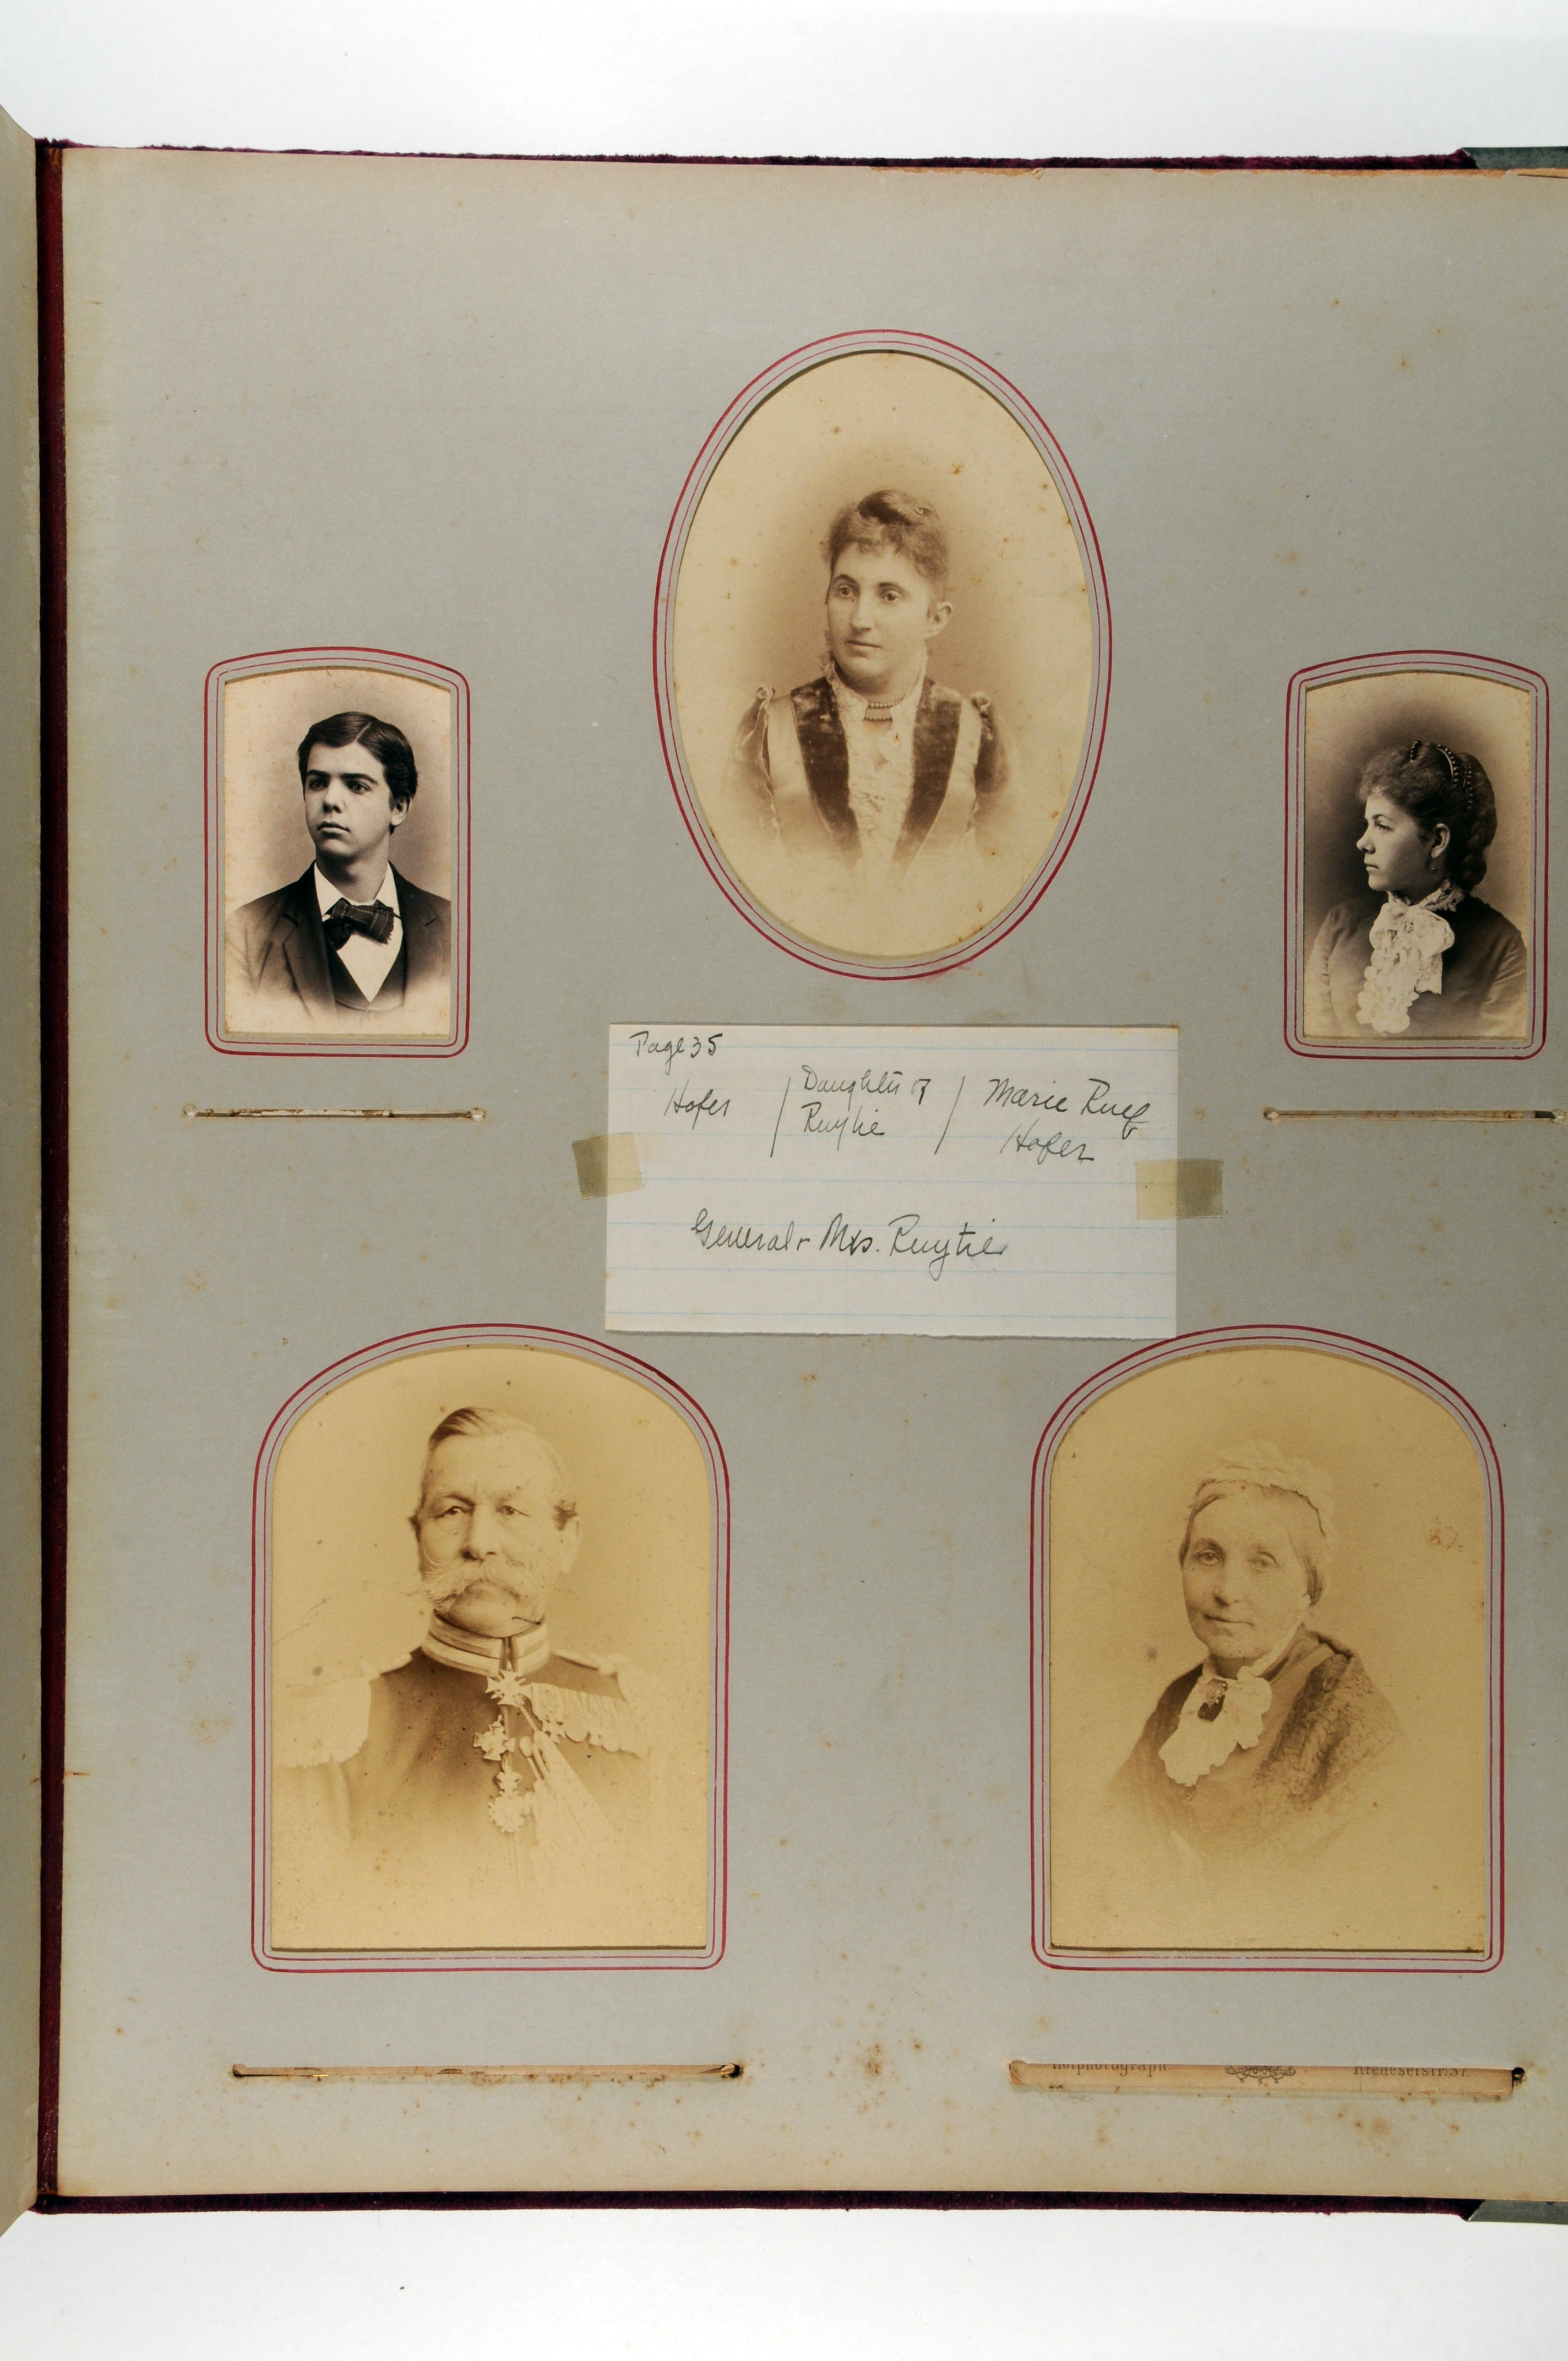 Page 35
Hofer / Daughter of / Marie Ruef
Ruytie Hofer
General + Mrs. Ruytie
Hofphotograph.